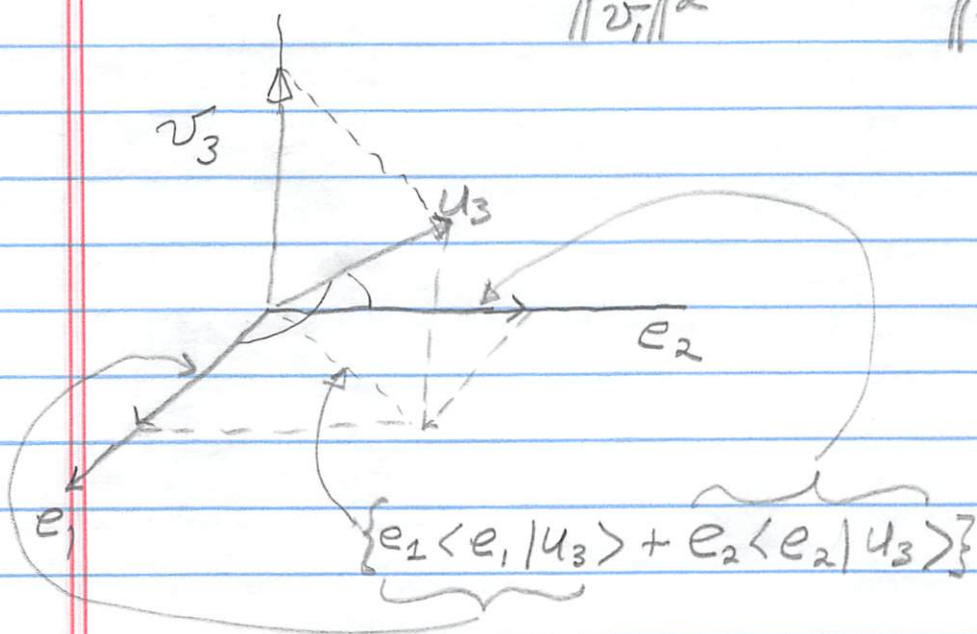 ‖v₁‖²
v₃
u₃
e₂
e₁
{e₁<e₁|u₃> + e₂<e₂|u₃>}